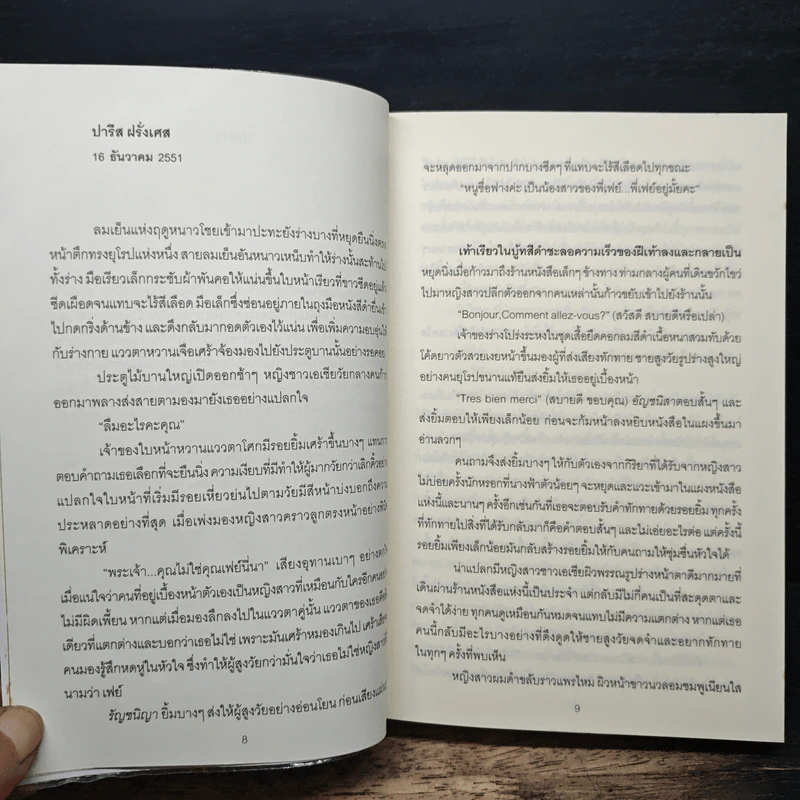 ปารีส ฝรั่งเศส
16 ธันวาคม 2551
ลมเย็นแห่งฤดูหนาวโชยเข้ามาปะทะยังร่างบางที่หยุดยืนนิ่งตรง
หน้าตึกทรงยุโรปแห่งหนึ่ง สายลมเย็นอันหนาวเหน็บทำให้ร่างนั้นสะท้านไป
ทั้งร่าง มือเรียวเล็กกระชับผ้าพันคอให้แน่นขึ้นใบหน้าเรียวที่ขาวซีดอยู่แล้ว
ซีดเผือดจนแทบจะไร้สีเลือด มือเล็กซึ่งซ่อนอยู่ภายในถุงมือหนังสีดำยื่น
ไปกดกริ่งด้านข้าง และดึงกลับมากอดตัวเองไว้แน่น เพื่อเพิ่มความอบอุ่น
กับร่างกาย แววตาหวานเจือเศร้าจ้องมองไปยังประตูบานนั้นอย่างรอคอย
ประตูไม้บานใหญ่เปิดออกช้าๆ หญิงชาวเอเชียวัยกลางคนก้าว
ออกมาพลางส่งสายตามองมายังเธออย่างแปลกใจ
“ลืมอะไรคะคุณ”
เจ้าของใบหน้าหวานแววตาโศกมีรอยยิ้มเศร้าขึ้นบางๆ แทน
ตอบคำถามเธอเลือกที่จะยืนนิ่ง ความเงียบที่มีทำให้ผู้มากวัยกว่าเลิกคิ้วอย่าง
แปลกใจใบหน้าที่เริ่มมีรอยเหี่ยวย่นไปตามวัยมีสีหน้าบ่งบอกถึงความ
ประหลาดอย่างที่สุด เมื่อเพ่งมองหญิงสาวคราวลูกตรงหน้าอย่าง
พิเคราะห์
“พระเจ้า...คุณไม่ใช่คุณเฟย์นี่นา” เสียงอุทานเบาๆ อย่างตกใจ
เมื่อแน่ใจว่าคนที่อยู่เบื้องหน้าตัวเองเป็นหญิงสาวที่เหมือนกับใครอีกคน
ไม่มีผิดเพี้ยน หากแต่เมื่อมองลึกลงไปในแววตาคู่นั้น แววตาของเธอ
เดียวที่แตกต่างและบอกว่าเธอไม่ใช่ เพราะมันเศร้าหมองเกินไป เศร้า
คนมองรู้สึกหดหู่ในหัวใจ ซึ่งทำให้ผู้สูงวัยกว่ามั่นใจว่าเธอไม่ใช่หญิงสาว
นามว่า เฟย์
รัญชนิญา ยิ้มบางๆ ส่งให้ผู้สูงวัยอย่างอ่อนโยน ก่อนเสียง
8
จะหลุดออกมาจากปากบางซีดๆ ที่แทบจะไร้สีเลือดไปทุกขณะ
“หนูชื่อฟางค่ะ เป็นน้องสาวของพี่เฟย์...พี่เฟย์อยู่มั้ยคะ”
เท้าเรียวในบู้ทสีดำชะลอความเร็วของฝีเท้าลงและกลายเป็น
หยุดนิ่งเมื่อก้าวมาถึงร้านหนังสือเล็กๆ ข้างทาง ท่ามกลางผู้คนที่เดินขวักไขว่
ไปมาหญิงสาวปลีกตัวออกจากคนเหล่านั้นก้าวขยับเข้าไปยังร้านนั้น
“Bonjour,Comment allez-vous?” (สวัสดี สบายดีหรือเปล่า)
เจ้าของร่างโปร่งระหงในชุดเสื้อยืดคอกลมสีดำเนื้อหนาสวมทับด้วย
โค้ดยาวตัวสวยเงยหน้าขึ้นมองผู้ที่ส่งเสียงทักทาย ชายสูงวัยรูปร่างสูงใหญ่
อย่างคนยุโรปขนานแท้ยืนส่งยิ้มให้เธออยู่เบื้องหน้า
“Tres bien merci” (สบายดี ขอบคุณ) อัญชนิสาตอบสั้นๆ และ
ส่งยิ้มตอบให้เพียงเล็กน้อย ก่อนจะก้มหน้าลงหยิบหนังสือในแผงขึ้นมา
อ่านลวกๆ
คนถามจึงส่งยิ้มบางๆ ให้กับตัวเองจากกิริยาที่ได้รับจากหญิงสาว
ไม่บ่อยครั้งนักหรอกที่นางฟ้าตัวน้อยๆ จะหยุดและแวะเข้ามาในแผงหนังสือ
แห่งนี้และนานๆ ครั้งอีกเช่นกันที่เธอจะตอบรับคำทักทายด้วยรอยยิ้ม ทุกครั้ง
ที่ทักทายไปสิ่งที่ได้รับกลับมาก็คือคำตอบสั้นๆ และไม่เอ่ยอะไรต่อ แต่ครั้งนี้
รอยยิ้มเพียงเล็กน้อยมันกลับสร้างรอยยิ้มให้กับคนถามให้ชุ่มชื่นหัวใจได้
น่าแปลกมีหญิงสาวชาวเอเชียผิวพรรณรูปร่างหน้าตาดีมากมายที่
เดินผ่านร้านหนังสือแห่งนี้เป็นประจำ แต่กลับมีไม่กี่คนเป็นที่สะดุดตาและ
จดจำได้ง่าย ทุกคนดูเหมือนกันหมดจนแทบไม่มีความแตกต่าง หากแต่เธอ
คนนี้กลับมีอะไรบางอย่างที่ดึงดูดให้ชายสูงวัยจดจำและอยากทักทาย
ในทุกๆ ครั้งที่พบเห็น
หญิงสาวผมดำขลับราวแพรไหม ผิวหน้าขาวนวลอมชมพูเนียนใส
9